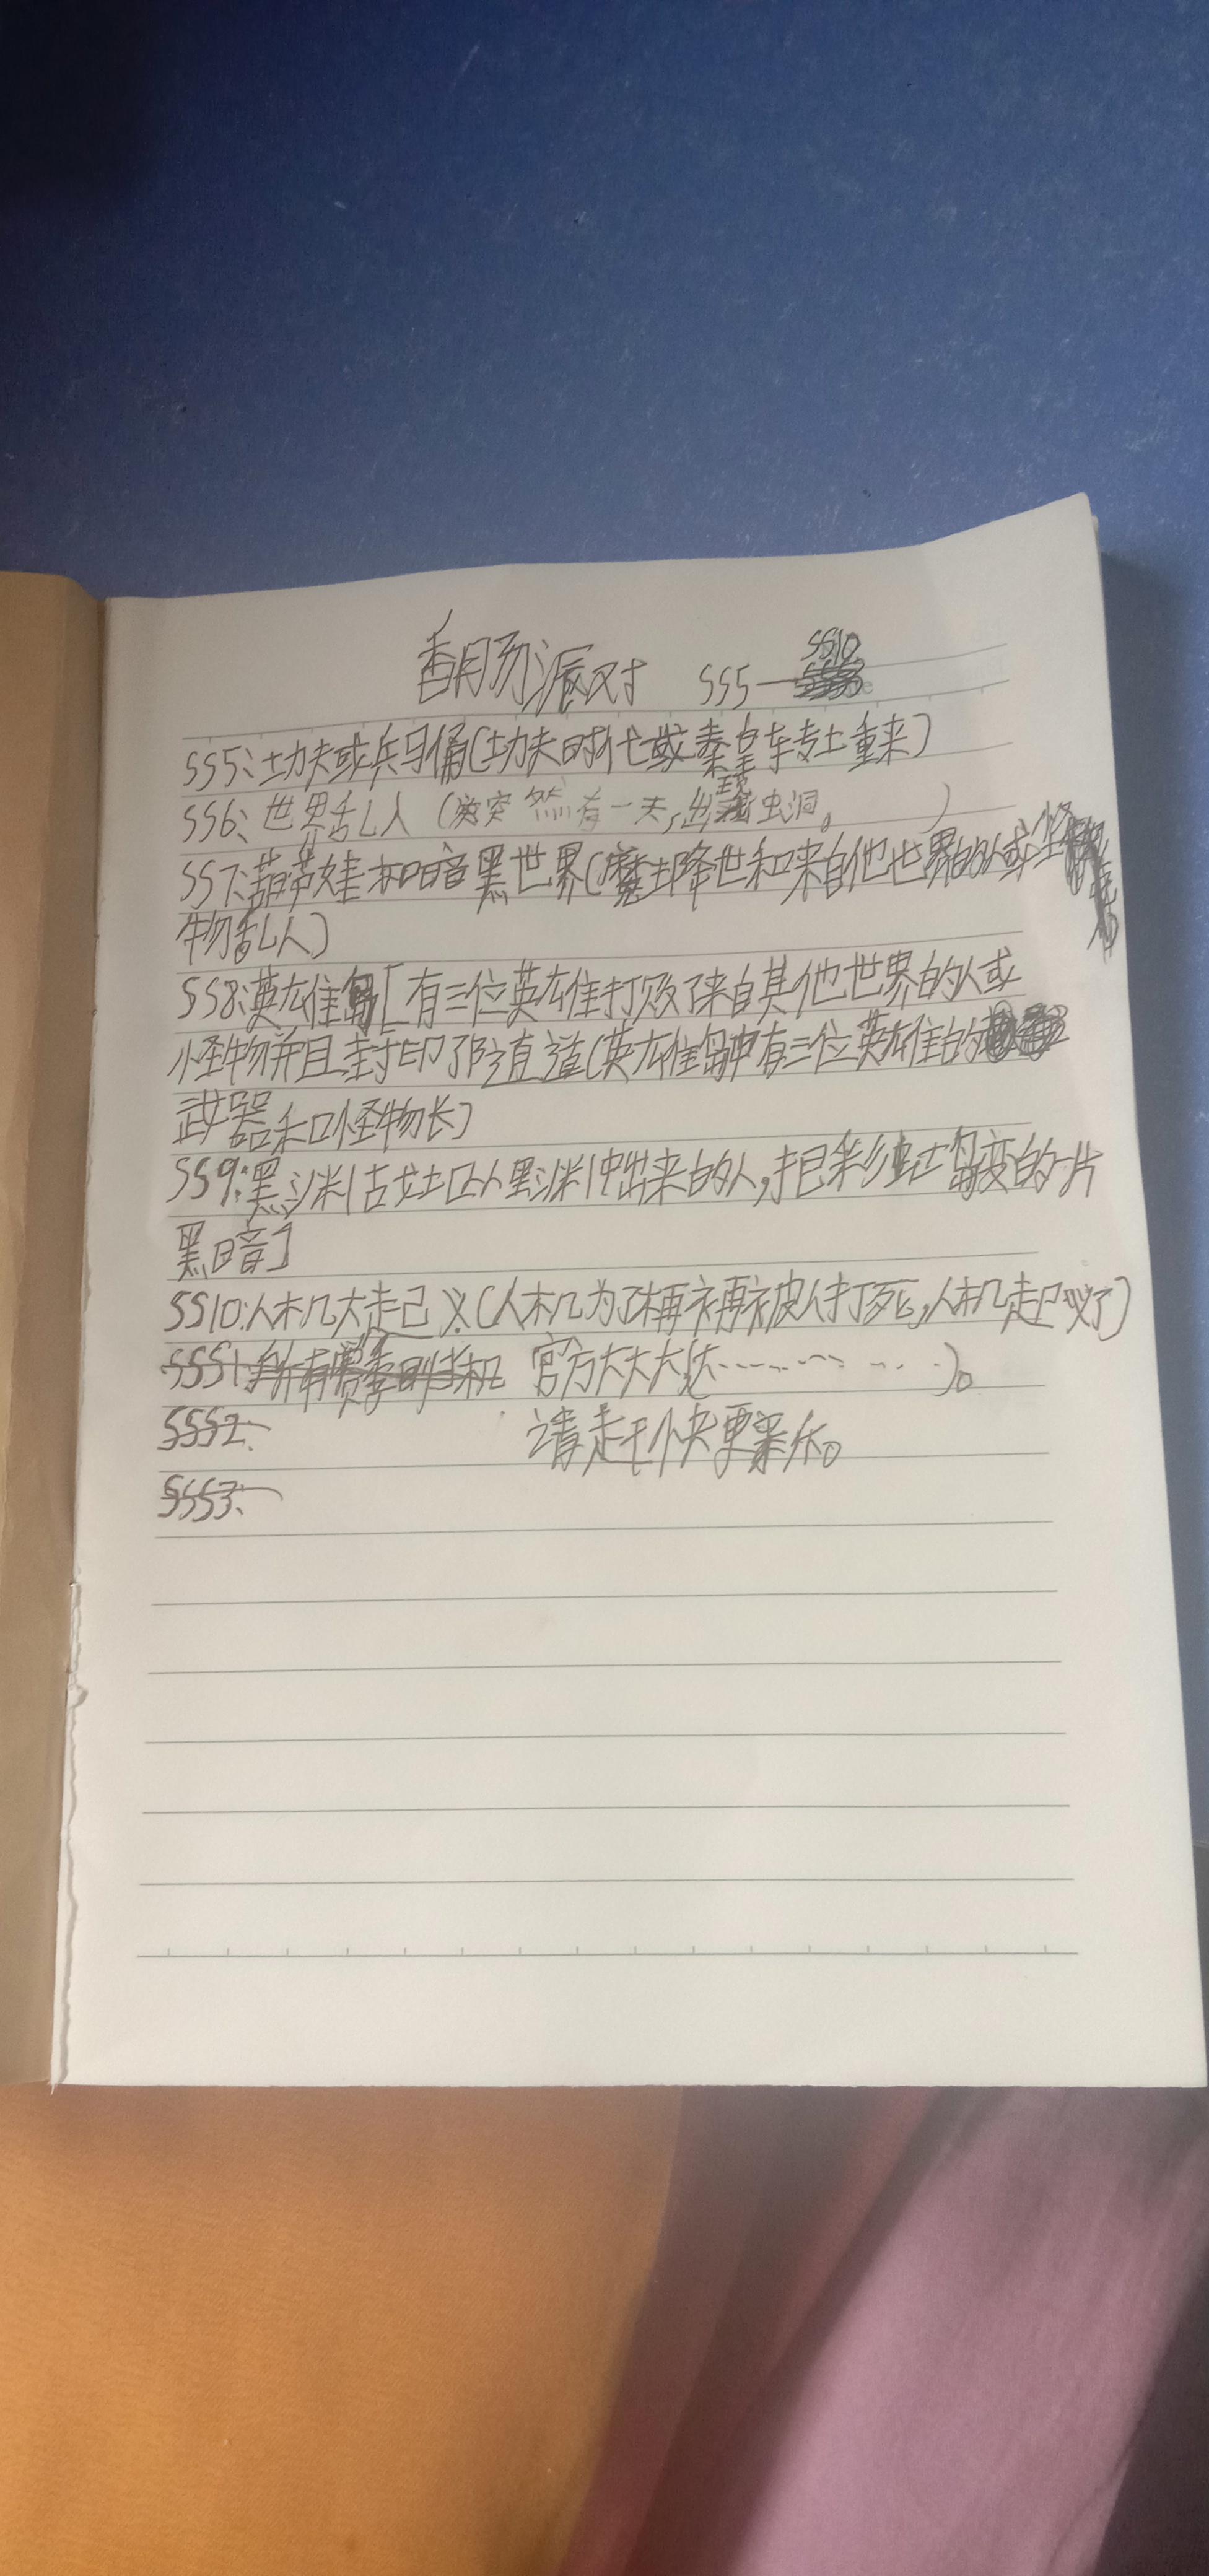 香肠派对 SS5—SS10
SS5:功夫或兵马俑(功夫时代或秦皇车专土重来)
SS6:世界乱人(突然有一天,出现虫洞。)
SS7:葫芦娃和暗黑世界(魔王降世和来自他世界的人或怪
物乱人)
SS8:英雄岛[有三位英雄打败了来自其他世界的人或
怪物并且封印了隧道(英雄岛中有三位英雄的
武器和怪物长)
SS9:黑洲古城[从黑洲中出来的人,把彩虹岛变的一片
黑暗]
SS10:人机大起义(人机为了不再被人打死,人机起义了)
SS51:所有赛季 官方大大大达………………)。
SS52:
请赶快更新乐。
SS53: